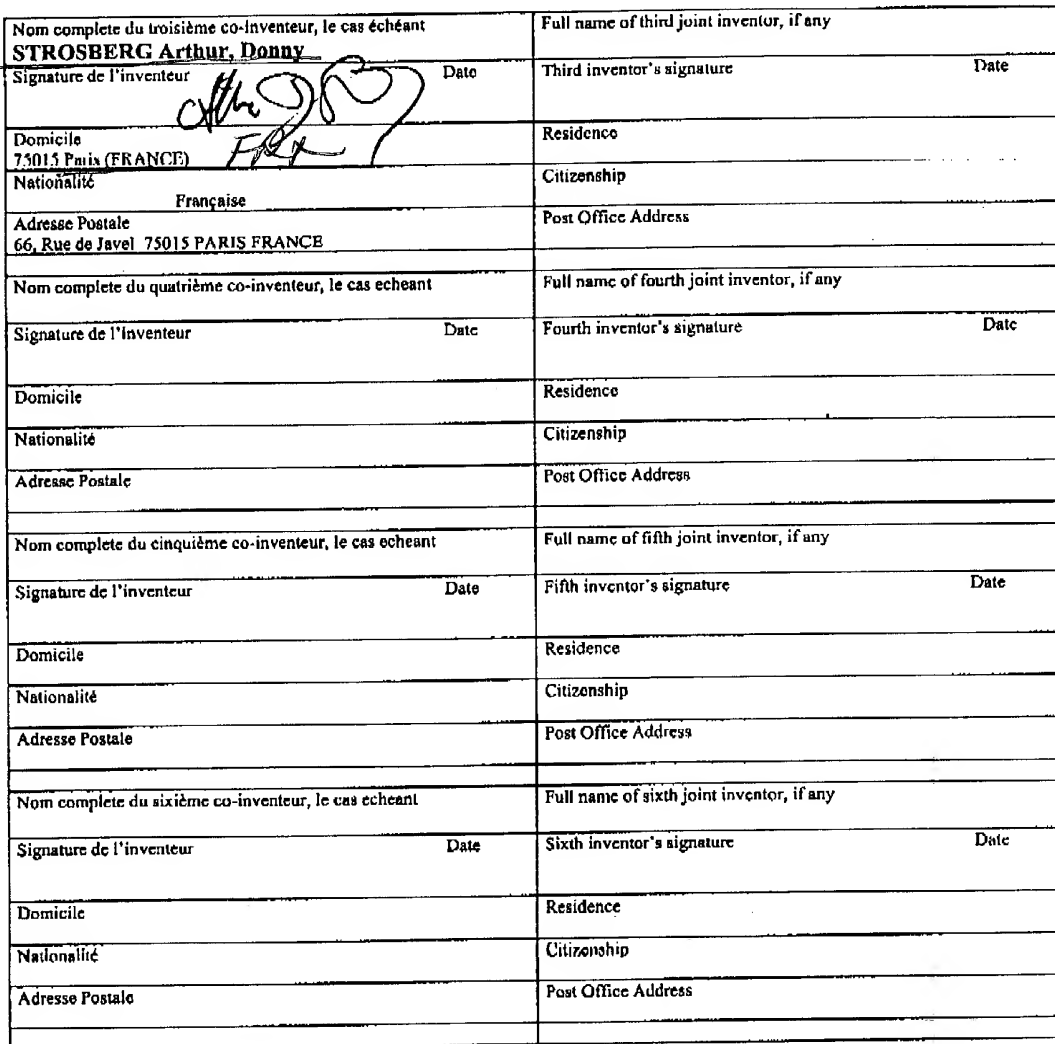 Nom complete du troisième co-inventeur, le cas échéant
Full name of third joint inventor, if any
STROSBERG Arthur, Donny
Signature de l'inventeur Date
Third inventor's signature Date
Domicile
Residence
75015 Paris (FRANCE)
FRX
Nationalité
Citizenship
Française
Adresse Postale
Post Office Address
66, Rue de Javel 75015 PARIS FRANCE
Nom complete du quatrième co-inventeur, le cas echeant
Full name of fourth joint inventor, if any
Signature de l'inventeur Date
Fourth inventor's signature Date
Domicile
Residence
Nationalité
Citizenship
Adresse Postale
Post Office Address
Nom complete du cinquième co-inventeur, le cas echeant
Full name of fifth joint inventor, if any
Signature de l'inventeur Date
Fifth inventor's signature Date
Domicile
Residence
Nationalité
Citizenship
Adresse Postale
Post Office Address
Nom complete du sixième co-inventeur, le cas echeant
Full name of sixth joint inventor, if any
Signature de l'inventeur Date
Sixth inventor's signature Date
Domicile
Residence
Nationalité
Citizenship
Adresse Postale
Post Office Address